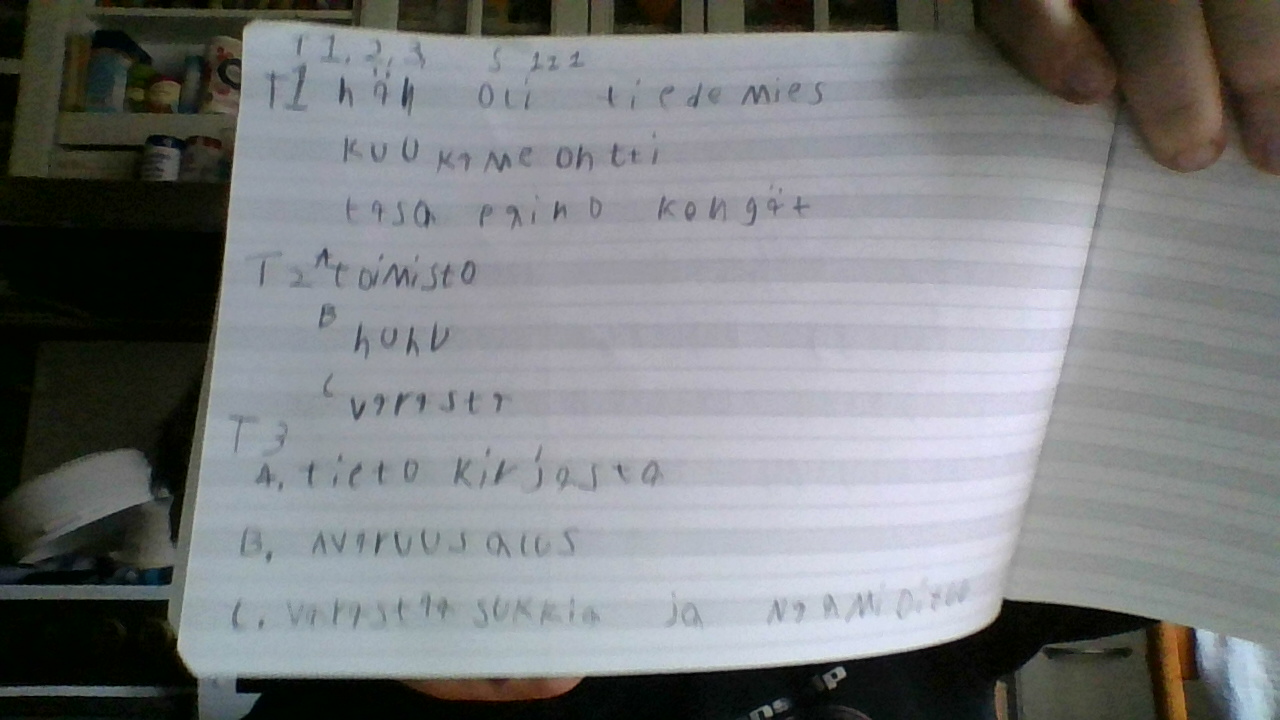 T 1, 2, 3 S 121
T1 hän oli tiedemies
KUU kameontti
tasa paino kengät
T2 A toimisto
B huhu
C varasta
T3
A. tieto kirjasta
B. Avaruus alus
C. varastaa sukkia ja